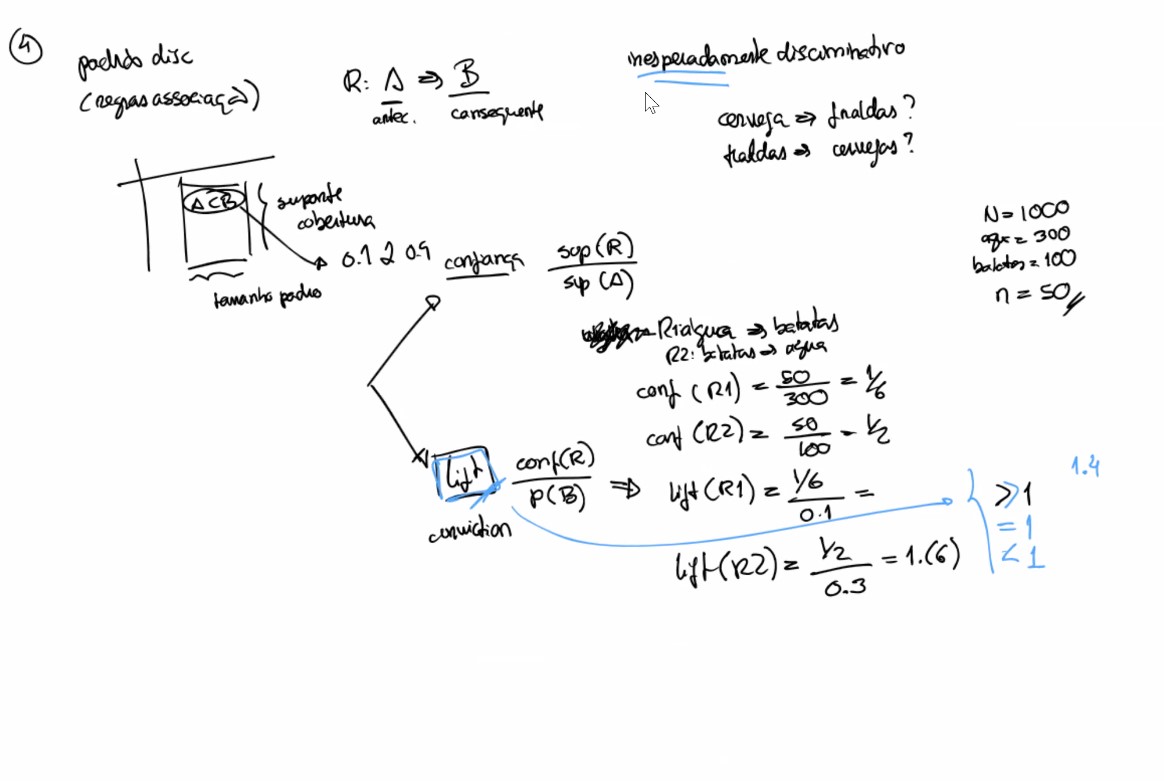 4
padrão disc
(regras associação)
R: A => B
antec. consequente
inesperadamente discriminativo
cerveja => fraldas?
fraldas => cervejas?
A C B
suporte
cobertura
tamanho padrão
0.1 0.9
confiança sup(R)
sup(A)
N = 1000
batatas = 100
n = 50
R1: água => batatas
R2: batatas => água
conf (R1) = 50/300 = 1/6
conf (R2) = 50/100 = 1/2
lift conf(R)/p(B) => lift(R1) = 1/6 / 0.1 =
conviction
lift(R2) = 1/2 / 0.3 = 1.(6)
>1
= 1
< 1
1.4